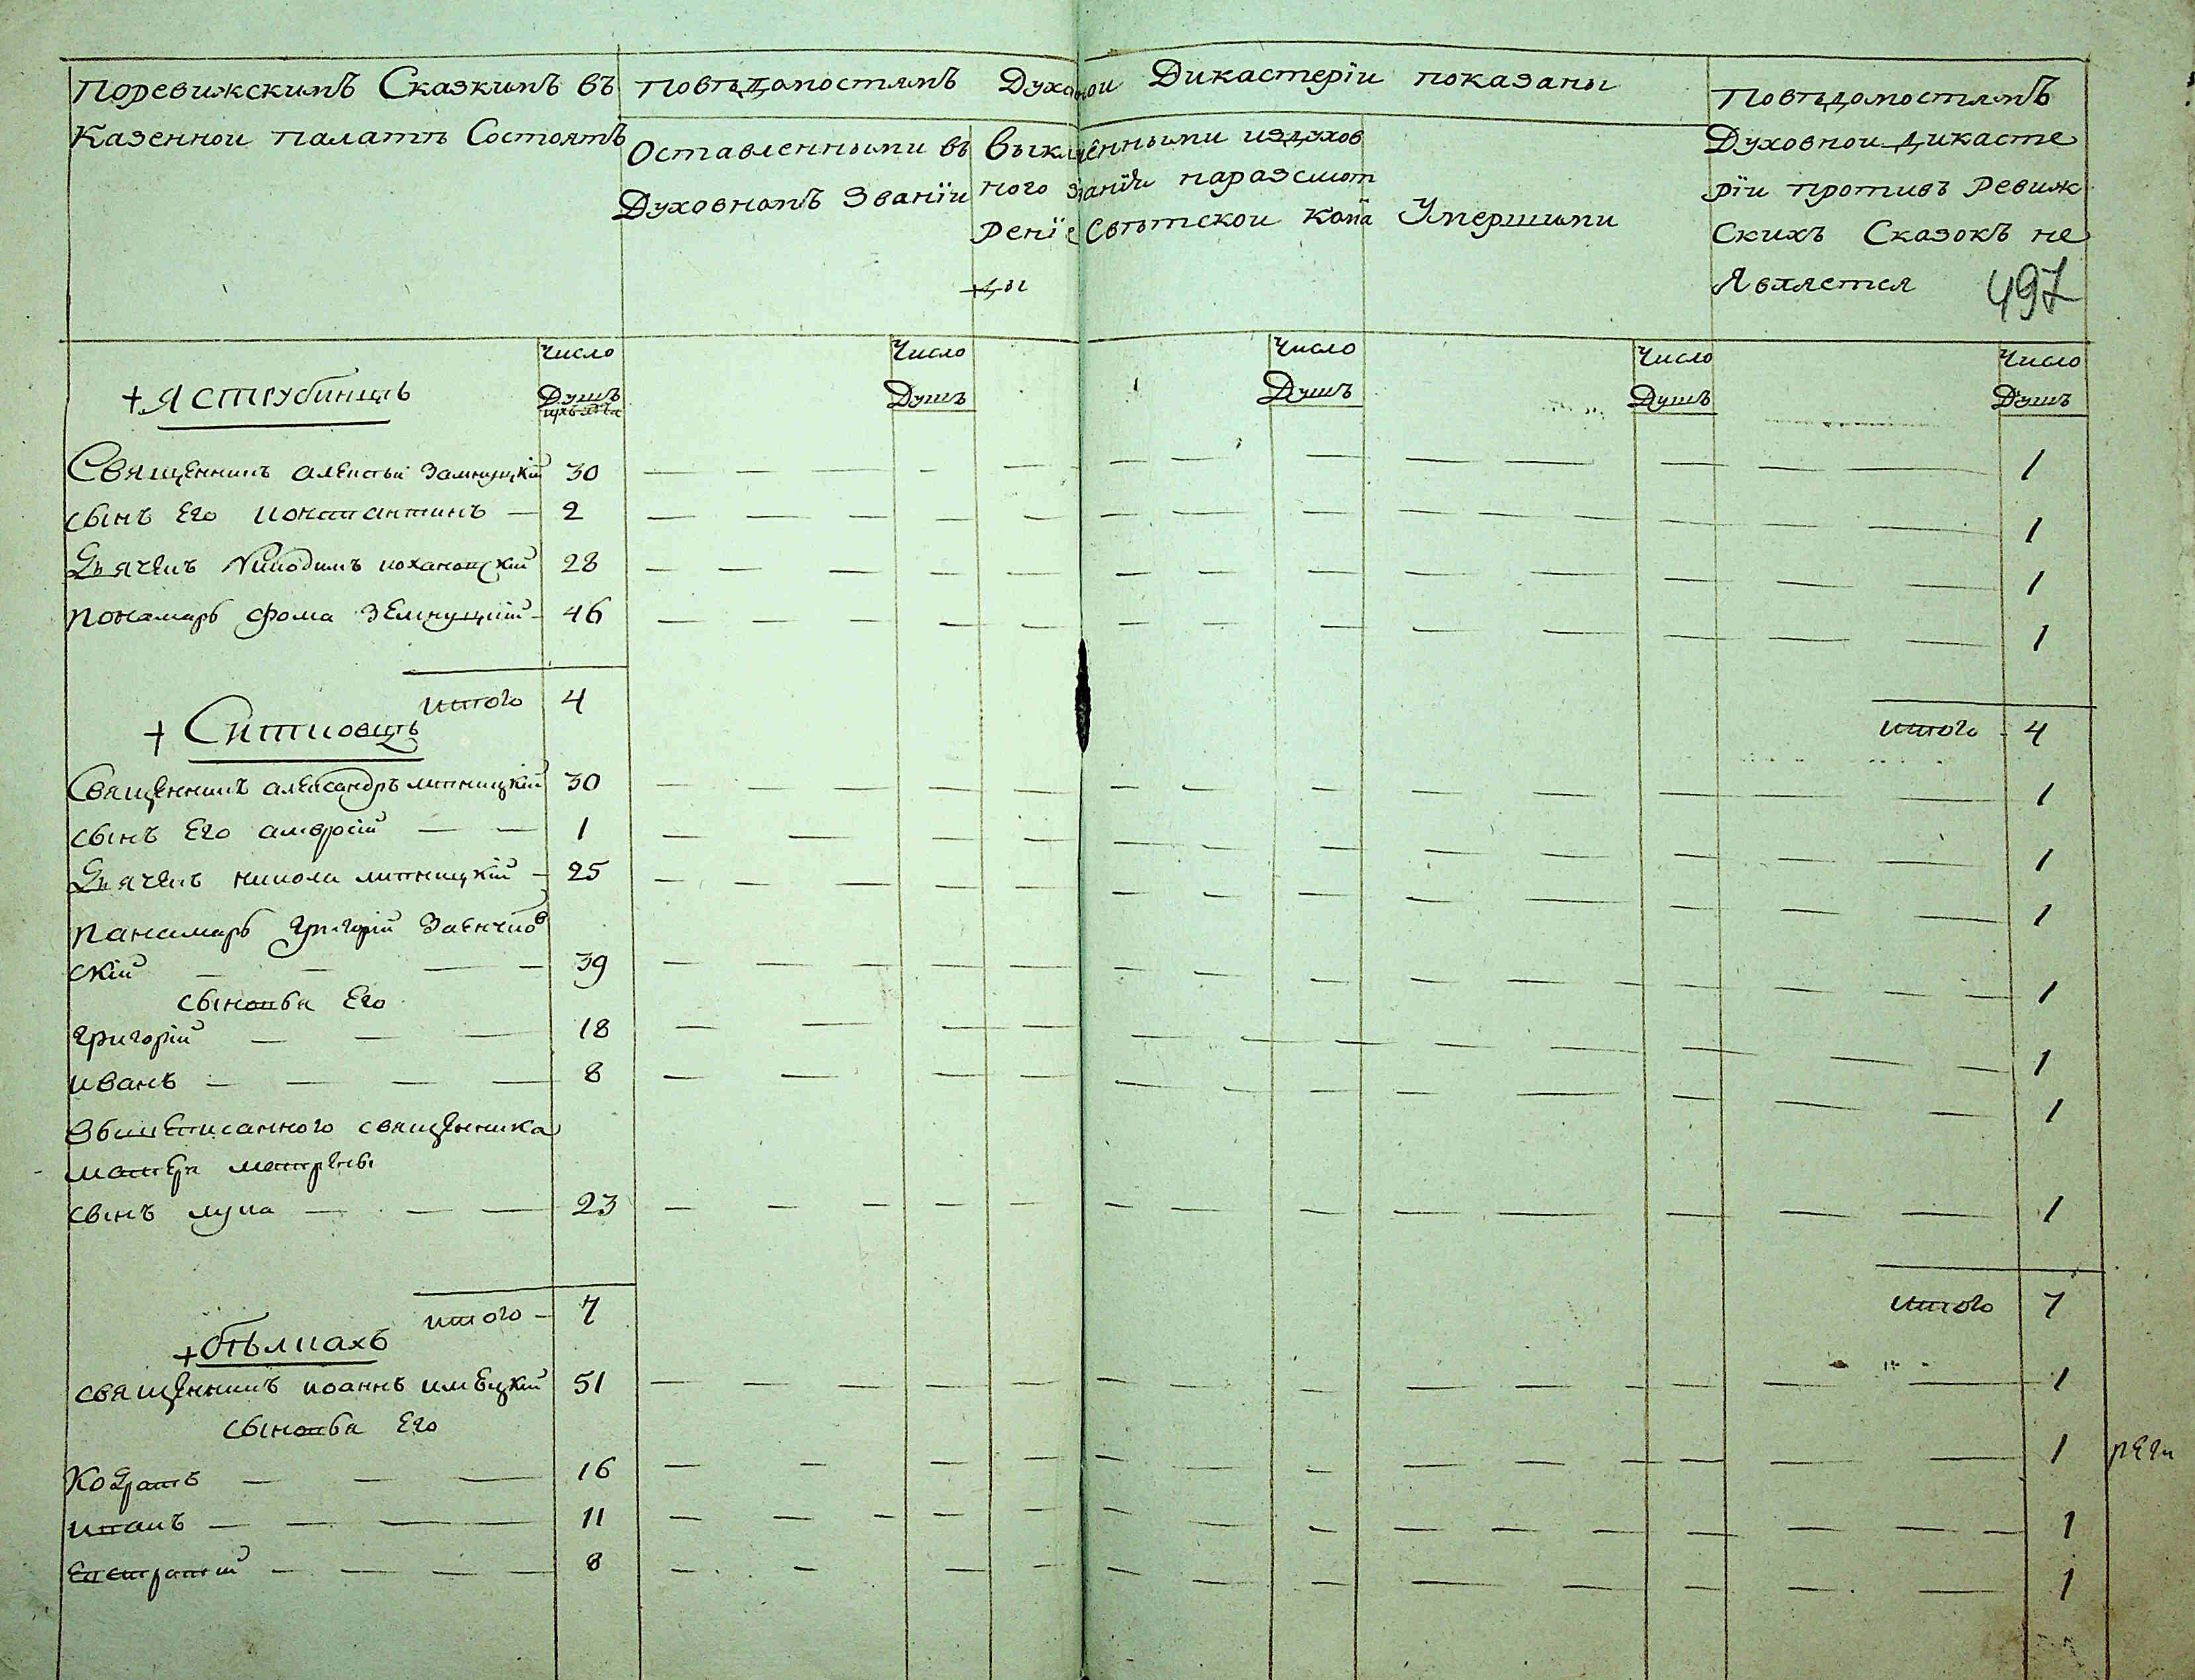 Поревижскимъ Сказкимъ въ
Казенной палатѣ Состоятъ
Повѣдомостямъ Духовной Дикастеріи показаны
Оставленными въ
Духовномъ Званїи
Выключенными издухов
ного Званїи наразсмот
Ренїе Свѣтской
Умершими
Повѣдомостямъ
Духовной дикасте
рїи противъ Ревиж
Скихъ Сказокъ не
Является
497
Число Число Число Число Число
Душъ Душъ Душъ Душъ Душъ
+ Яструбинцѣ
Священникъ алексѣй 30 1
сынъ Его константинъ 2 1
Дьячекъ Никодимъ 28 1
пономарь фома 46 1
итого 4 итого 4
+ Ситковцѣ
Священникъ александръ липницкій 30 1
сынъ Его амвросій 1 1
Дьячекъ никола липницкій 25 1
панамарь григорій
скій 39 1
сыновья Его
григорій 18 1
иванъ 8 1
священника
матери матрены
сынъ лука 23 1
итого 7 итого 7
+ бѣлкахъ
священникъ иоаннъ 51 1
сыновья Его
Кодратъ 16 1
иванъ 11 1
Евстратій 8 1